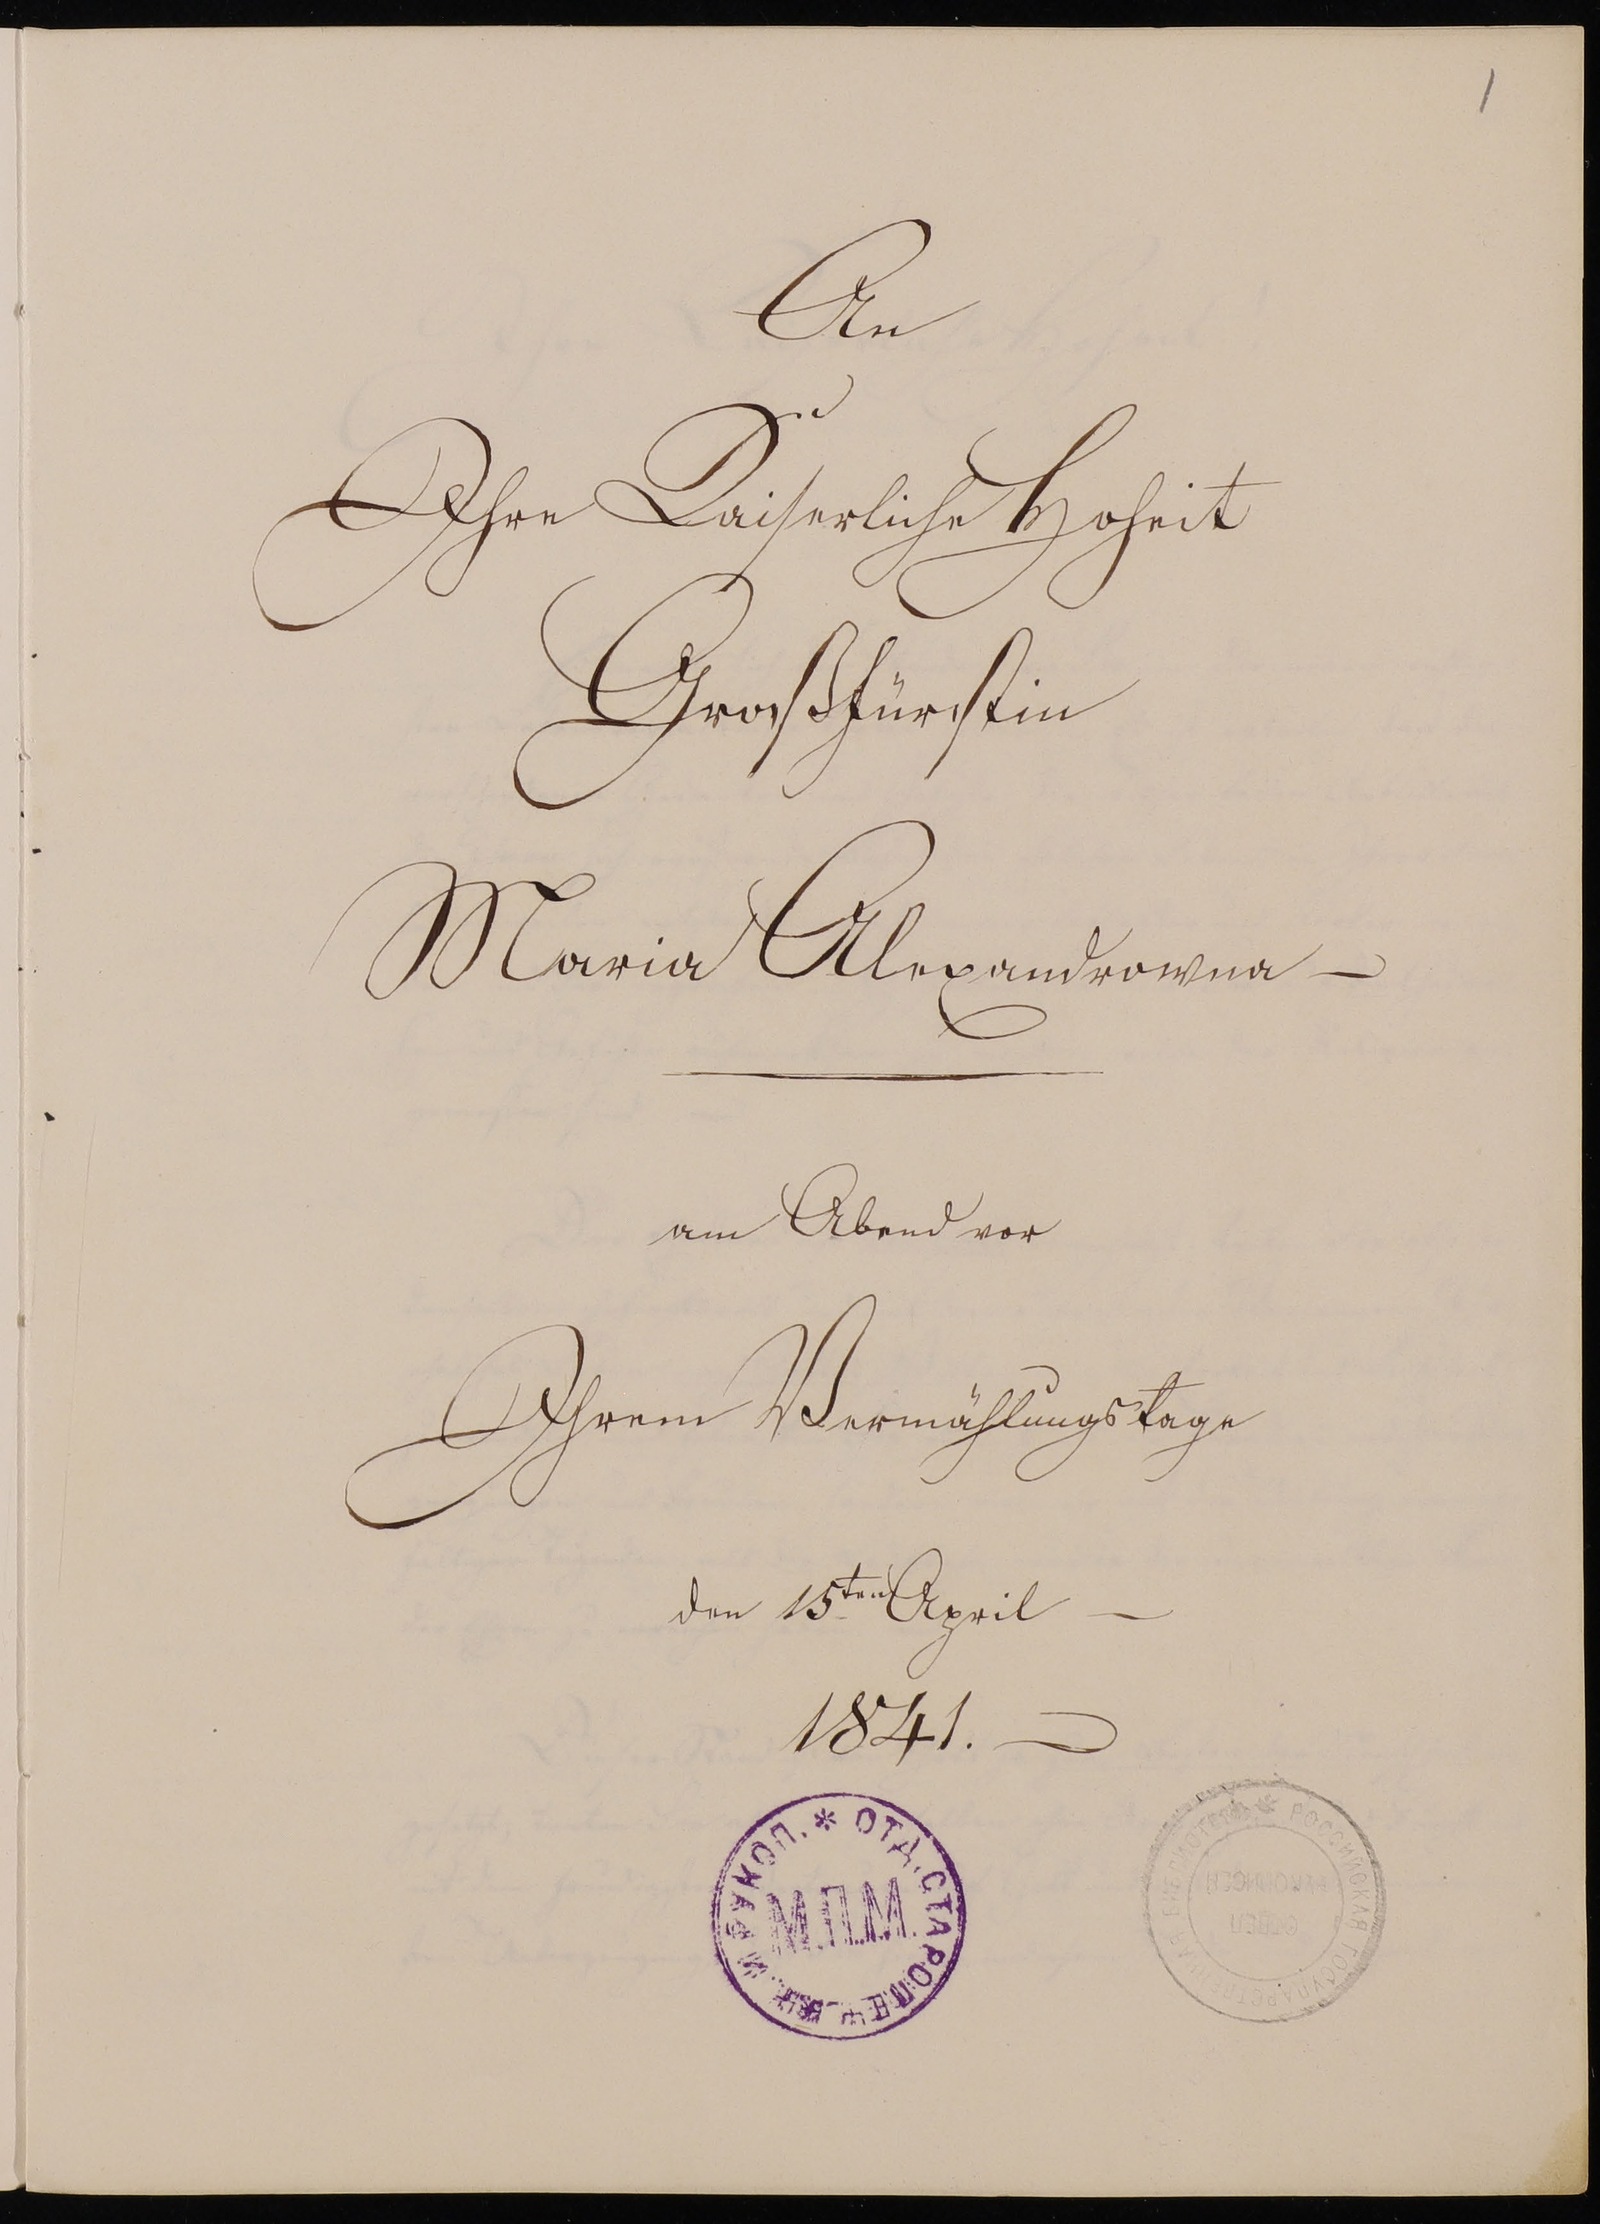 1
An
Ihre Kaiserliche Hoheit
Großfürstin
Maria Alexandrowna –
am Abend vor
Ihrem Vermählungstage
den 15ten April –
1841. –
ОТД. СТАРОПЕЧ. КН. И РУКОП. *
М.П.М.
РОССИЙСКАЯ ГОСУДАРСТВЕННАЯ БИБЛИОТЕКА *
ОТДЕЛ
РУКОПИСЕЙ